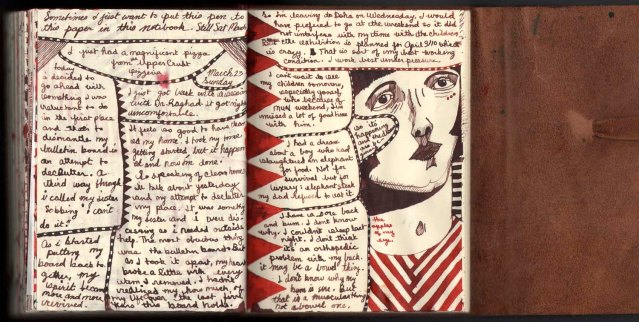 Sometimes I just want to put this pen to
this paper in this notebook. Still Sat March
I just had a magnificent pizza
from UpperCrust
pizzeria.
March 23
Sunday
today
I decided to
go ahead with
something I was
reluctant to do
in the first place
and that is
dismantle my
bulletin board in
an attempt to
declutter. A
third way through
I called my sister
sobbing: i can't
do it.
As I started
putting my
board back to-
gether, my
spirit became
more and more
revived.
I just got back with a session
with Dr. Raghad it got my
uncomfortable.
It feels so good to have
ed my home. I took my time
getting started but it happen-
ed and now im done.
So speaking of clean homes
lets talk about yesterday
and my attempt to declutter
my place. It was some
my sister and I were dis-
cussing as i needed outside
help. The most obvious thing
was the bulletin board. But
as I took it apart, my heart
broke a little with every
item I removed. I hadn't
realized my how much of
my life over the last first
years this board holds.
So Im leaving to Doha on Wednesday. I would
have preferred to go at the weekend so it did
not interfere with my time with the children
But the exhibition is planned for April 3/10 which
is crazy. That is sort of my best working
condition. I work best under pressure.
I cant wait to see
my children tomorrow,
especially younes
who because of
most weekend, I've
missed a lot of good time
with him.
so its
happening
I had a dream
about a boy who had
slaughtered an elephant
for food. Not for
survival but for
luxury: elephant steak
my dad refused to eat it.
I have a sore back
and bum. I dont know
why. I couldn't sleep last
night. I dont think
it's an orthopedic
problem with my back.
it may be a bowel thing.
I don't know why my
bum is sore. But
that is a muscular thing
not a bowel one.
the
apples
of my
eye.